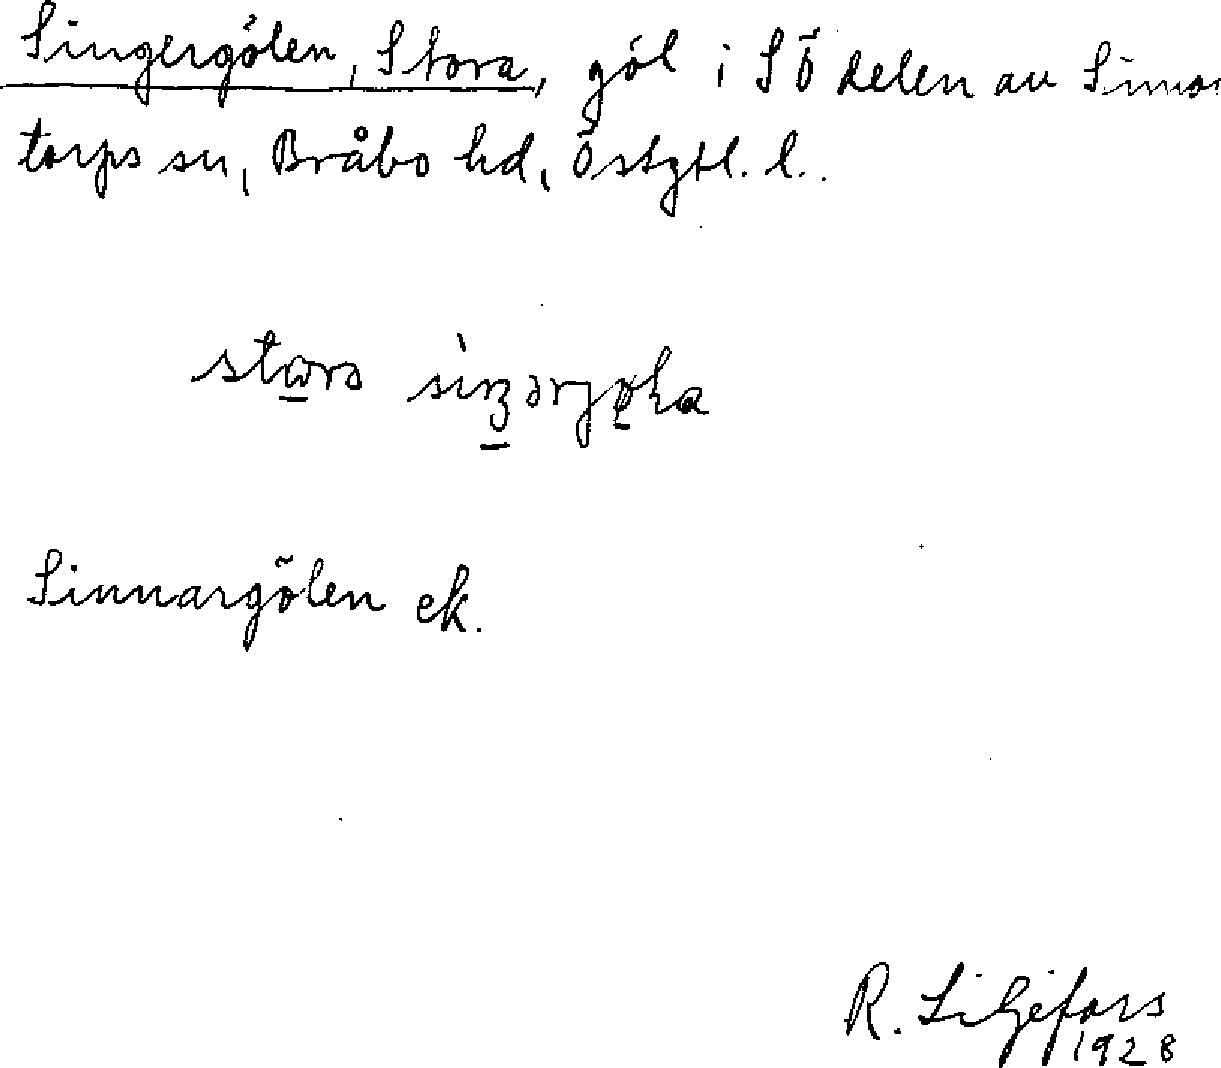 Singergölen, Stora, göl i SÖ delen av Simos
torps sn, Bråbo hd, Östgtl. l..
Sinnargölen ek.
R. Liljefors
1928